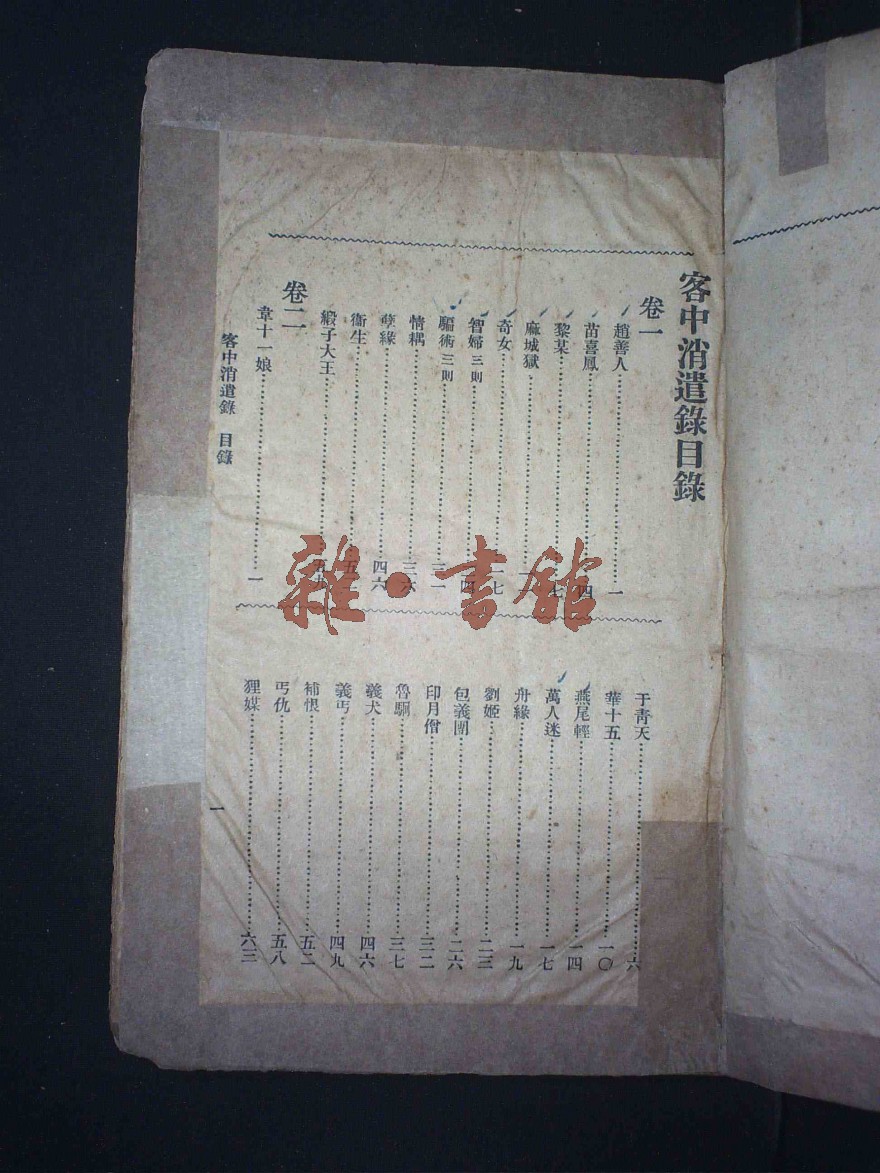 客中消遣錄目錄
卷一
趙善人 一
苗喜鳳 四
黎某 七
麻城獄
奇女 七
智婦三則
騙術三則 三一
情耦 三六
孽緣 四六
衞生
緞子大王
卷二
韋十一娘 一
于青天 六
華十五 一〇
燕尾輕 一四
萬人迷 一七
舟緣 一九
劉姬 二三
包義團 二六
印月僧 三二
魯駟 三七
義犬 四六
義丐 四九
補恨 五二
丐仇 五八
狸媒 六三
客中消遣錄 目錄
一
雜·書館